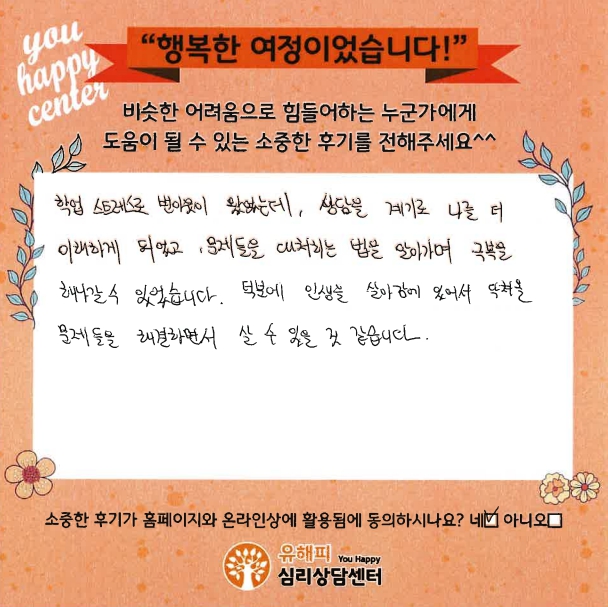 you
happy
center
“행복한 여정이었습니다!”
비슷한 어려움으로 힘들어하는 누군가에게
도움이 될 수 있는 소중한 후기를 전해주세요^^
학업 스트레스로 번아웃이 왔었는데, 상담을 계기로 나를 더
이해하게 되었고, 문제들을 대처하는 법을 알아가며 극복을
해나갈 수 있었습니다. 덕분에 인생을 살아감에 있어서 닥쳐올
문제들을 해결하면서 살 수 있을 것 같습니다.
소중한 후기가 홈페이지와 온라인상에 활용됨에 동의하시나요? 네☑ 아니오☐
유해피 You Happy
심리상담센터